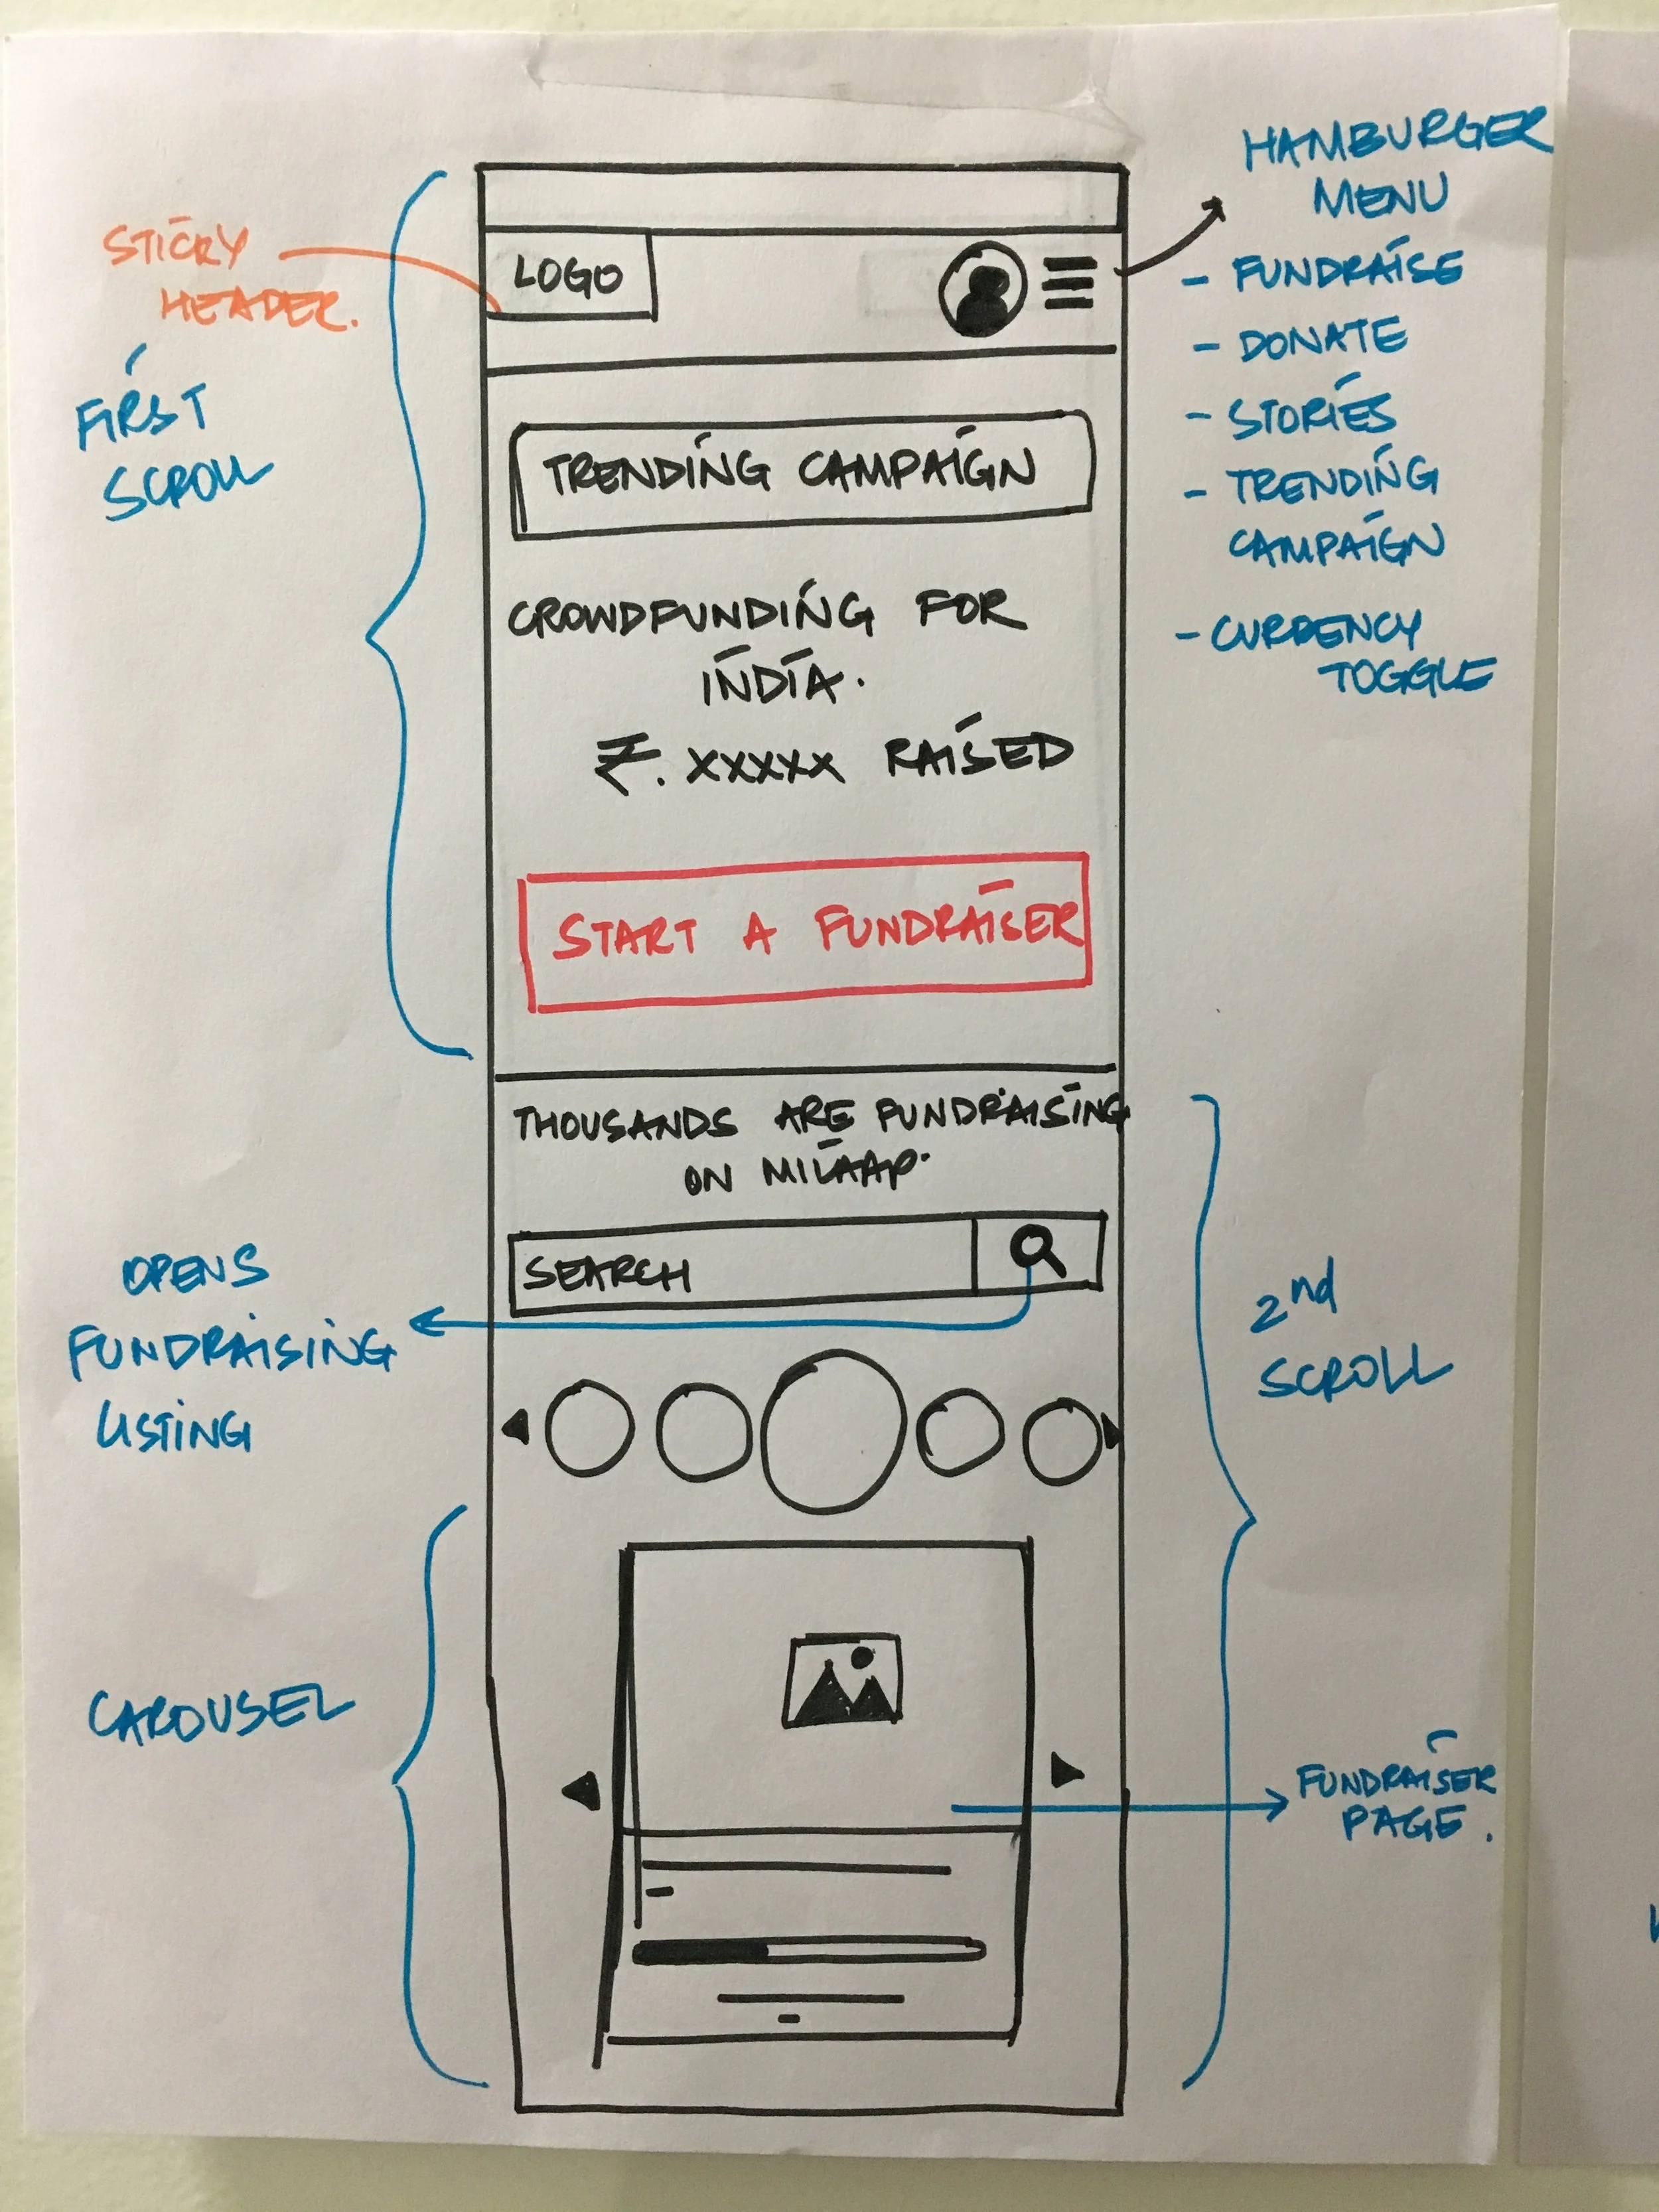 HAMBURGER
MENU
- FUNDRAISE
- DONATE
- STORIES
- TRENDING
CAMPAIGN
- CURRENCY
TOGGLE
STICKY
HEADER.
FIRST
SCROLL
LOGO
TRENDING CAMPAIGN
CROWDFUNDING FOR
INDIA.
₹. XXXXX RAISED
START A FUNDRAISER
THOUSANDS ARE FUNDRAISING
ON MILAAP.
SEARCH
OPENS
FUNDRAISING
LISTING
2nd
SCROLL
CAROUSEL
FUNDRAISER
PAGE.